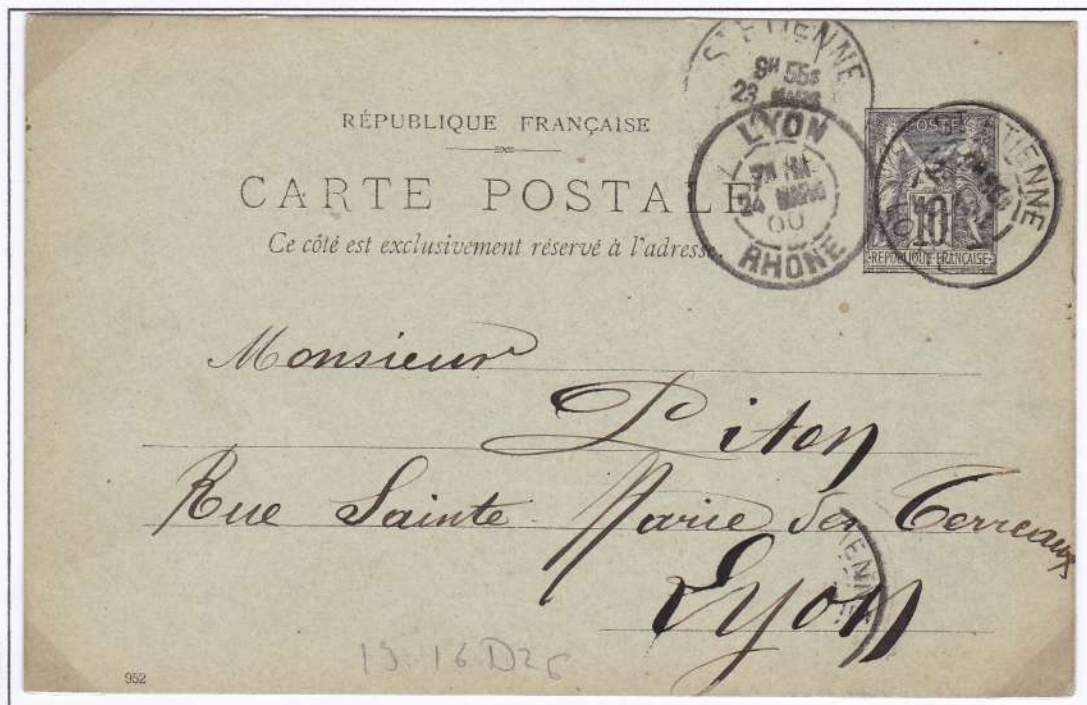 RÉPUBLIQUE FRANÇAISE
CARTE POSTALE
Ce côté est exclusivement réservé à l'adresse.
ST ETIENNE
9H 55S
23 MARS
LYON
24 MARS
00
RHONE
POSTE
10
REPUBLIQUE FRANÇAISE
ETIENNE
Monsieur
Piton
Rue Sainte Marie des Terreaux
Lyon
952